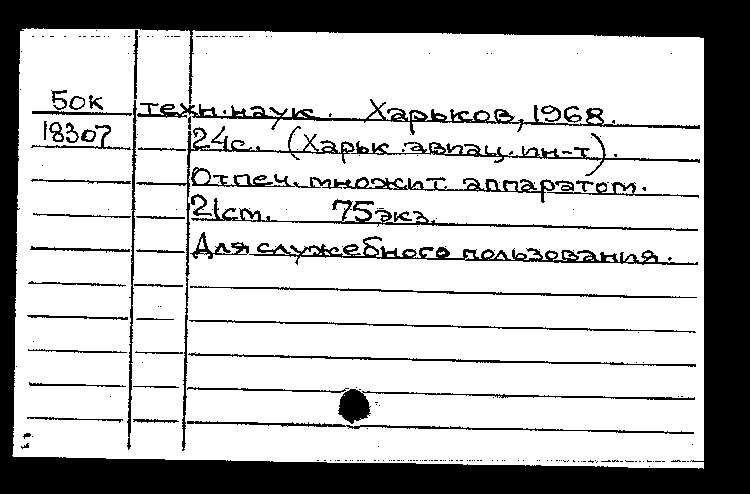 БОК техн. наук. Харьков, 1968.
18307 24с. (Харьк. авиац. ин-т).
Отпеч. множит. аппаратом.
21 см. 75 экз.
Для служебного пользования.